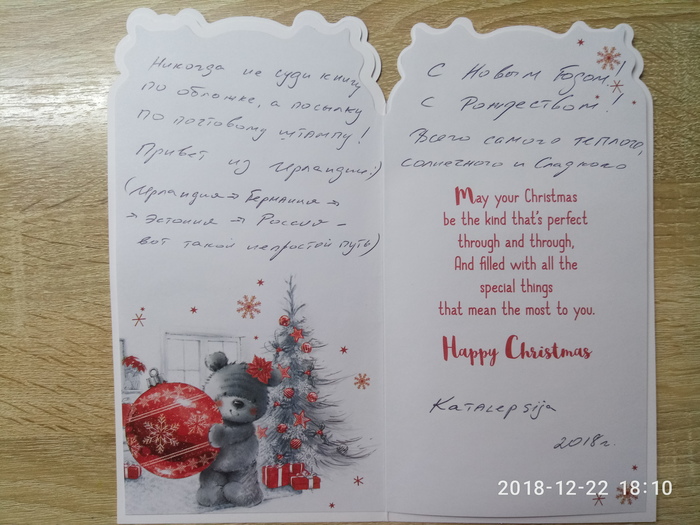 Никогда не суди книгу
по обложке, а посылку
по почтовому штампу!
Привет из Ирландии:)
(Ирландия → Германия →
→ Эстония → Россия –
вот такой непростой путь)
С Новым Годом!
С Рождеством!
Всего самого теплого,
солнечного и сладкого
May your Christmas
be the kind that's perfect
through and through,
And filled with all the
special things
that mean the most to you.
Happy Christmas
Katalepsija
2018г.
2018-12-22 18:10